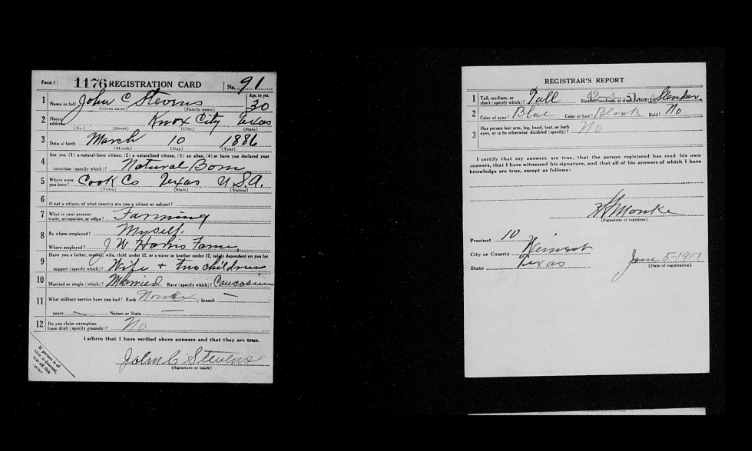 Form 1 1176 REGISTRATION CARD No. 91
1 Name in full John C Stevens Age, in yrs. 30
(Given name) (Family name)
2 Home address Knox City Texas
(No.) (Street) (City) (State)
3 Date of birth March 10 1886
(Month) (Day) (Year)
4 Are you (1) a natural-born citizen, (2) a naturalized citizen, (3) an alien, (4) or have you declared your
intention (specify which)? Natural Born
5 Where were you born? Cook Co Texas U.S.A.
(Town) (State) (Nation)
6 If not a citizen, of what country are you a citizen or subject?
7 What is your present trade, occupation, or office? Farming
8 By whom employed? Myself
Where employed? J W Farm,
9 Have you a father, mother, wife, child under 12, or a sister or brother under 12, solely dependent on you for
support (specify which)? Wife + two children
10 Married or single (which)? Married Race (specify which)? Caucasian
11 What military service have you had? Rank None branch —
years — Nation or State —
12 Do you claim exemption from draft (specify grounds)? No
I affirm that I have verified above answers and that they are true.
John C Stevens
(Signature or mark)
REGISTRAR'S REPORT
1 Tall, medium, or short (specify which)? Tall Slender, medium, or stout (which)? Slender
2 Color of eyes? Blue Color of hair? Black Bald? No
3 Has person lost arm, leg, hand, foot, or both
eyes, or is he otherwise disabled (specify)? No
I certify that my answers are true, that the person registered has read his own
answers, that I have witnessed his signature, and that all of his answers of which I have
knowledge are true, except as follows:
Monke
(Signature of registrar)
Precinct 10
City or County
State Texas June 5 1917
(Date of registration)